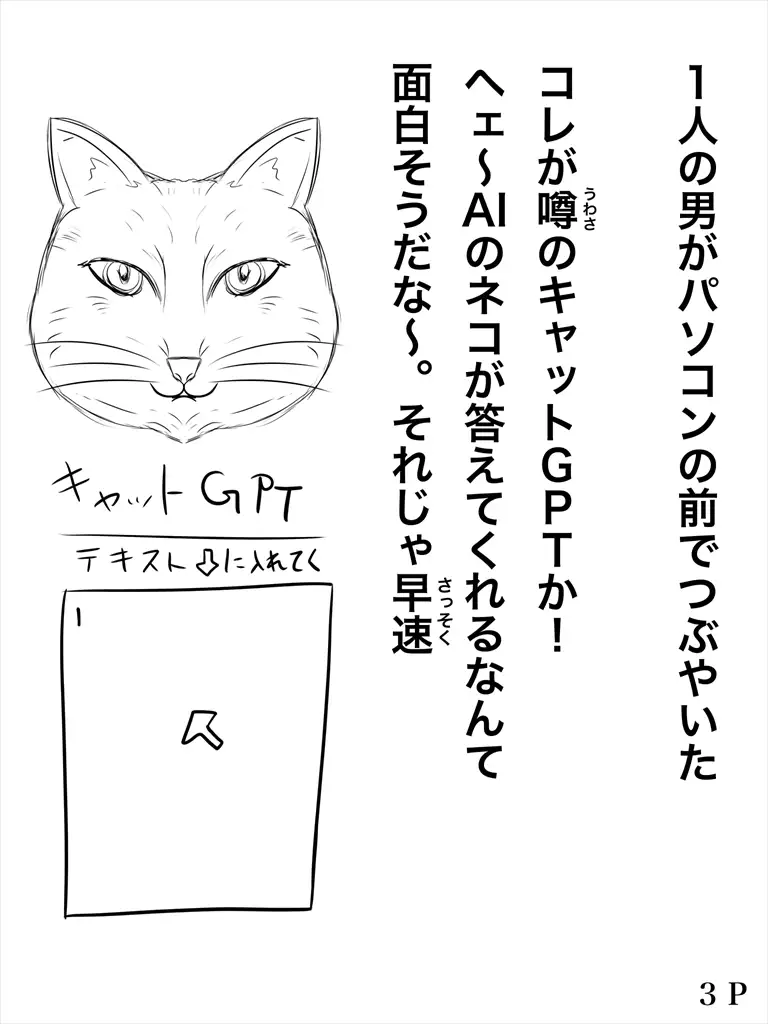 1人の男がパソコンの前でつぶやいた
コレが噂のキャットGPTか！
うわさ
ヘェ〜AIのネコが答えてくれるなんて
面白そうだな〜。それじゃ早速
さっそく
キャットGPT
テキスト⇩に入れてく
3P